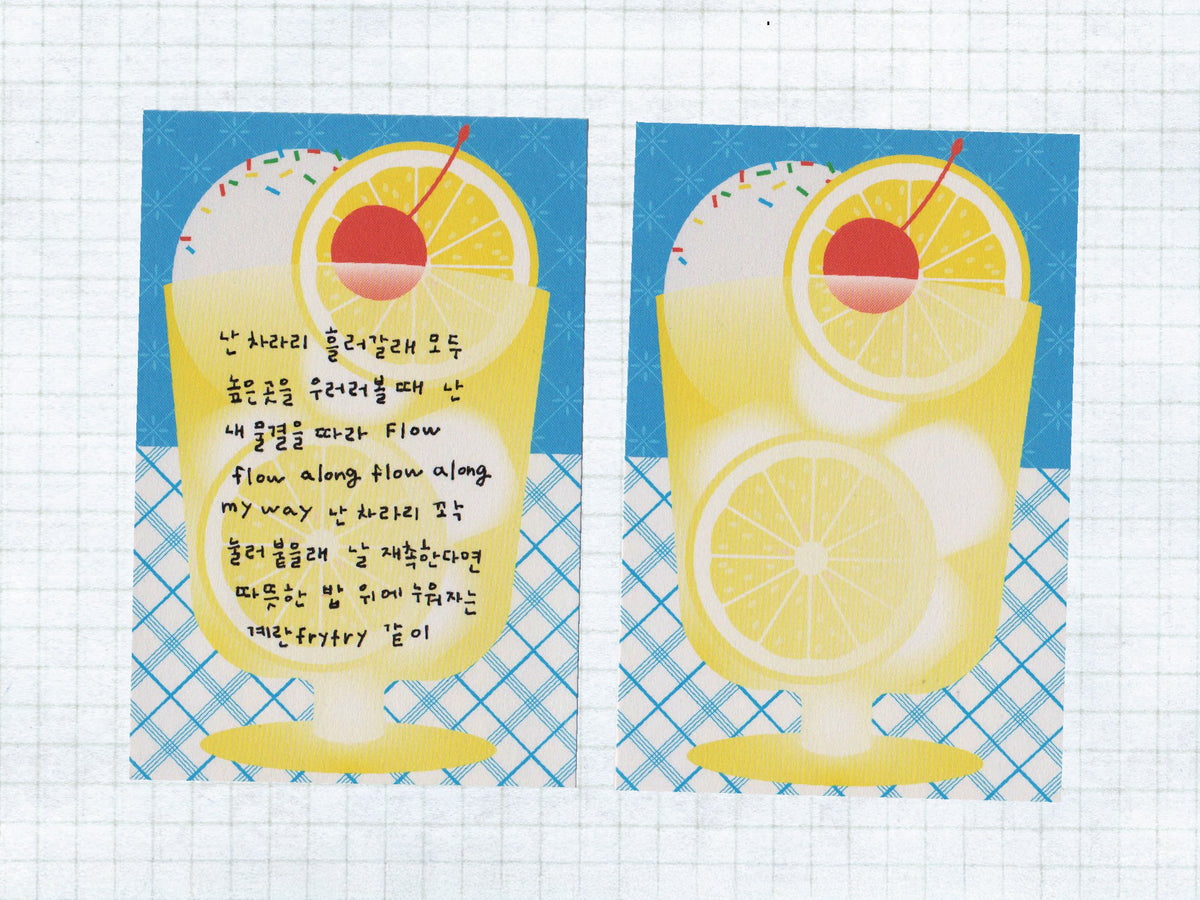 난 차라리 흘러갈래 모두
높은곳을 우러러볼 때 난
내 물결을 따라 Flow
flow along flow along
my way 난 차라리 꼬닥
눌러 붙을래 날 재촉한다면
따뜻한 밥 위에 누워자는
계란fryfry 같이